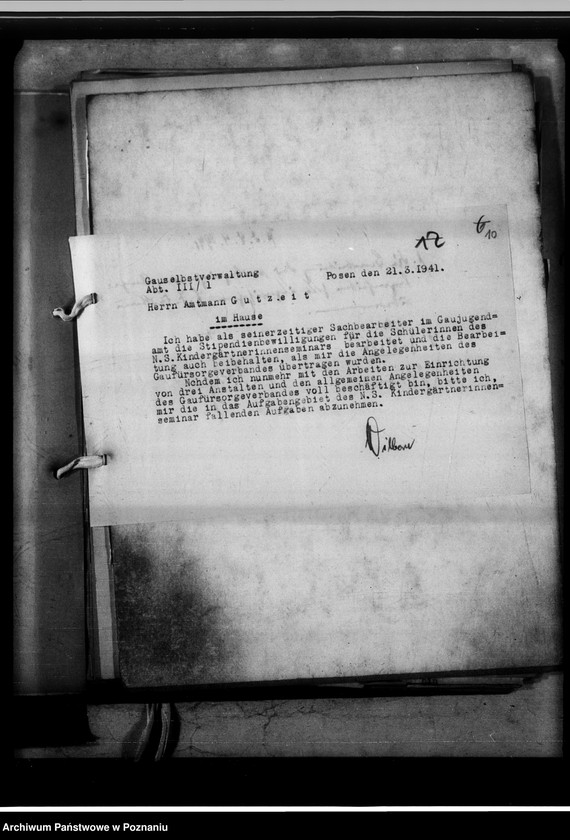 17
10
Gauselbstverwaltung
Posen den 21.3.1941.
Abt. III/ 1
Herrn Amtmann G u t z e i t
im Hause
Ich habe als seinerzeitiger Sachbearbeiter im Gaujugend=
amt die Stipendienbewilligungen für die Schülerinnen des
N.S.Kindergärtnerinnenseminars bearbeitet und die Bearbei=
tung auch beibehalten, als mir die Angelegenheiten des
Gaufürsorgeverbandes übertragen wurden.
Nchdem ich nunmehr mit den Arbeiten zur Einrichtung
von drei Anstalten und den allgemeinen Angelegenheiten
des Gaufürsorgeverbandes voll beschäftigt bin, bitte ich,
mir die in das Aufgabengebiet des N.S. Kindergärtnerinnen=
seminar fallenden Aufgaben abzunehmen.
Archiwum Państwowe w Poznaniu